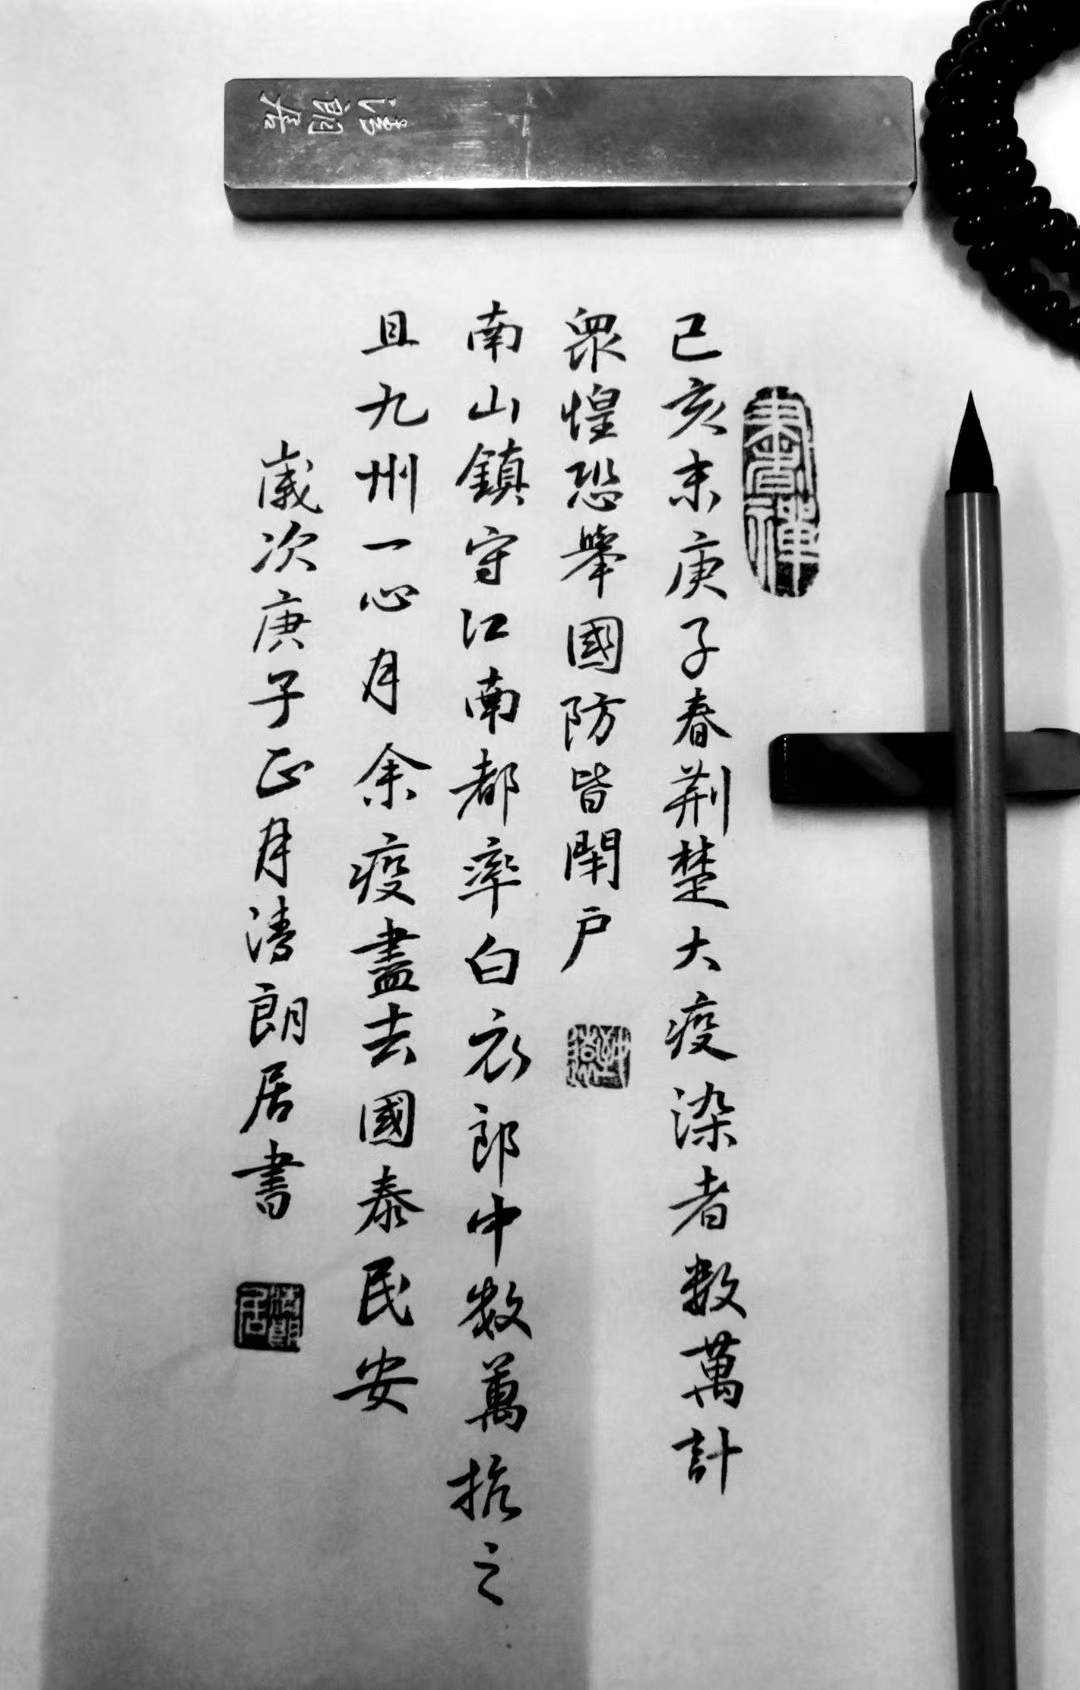 己亥末庚子春荆楚大疫染者数萬計
眾惶恐舉國防皆閉户
南山鎮守江南都率白衣郎中数萬抗之
且九州一心月余疫盡去國泰民安
歲次庚子正月清朗居書
清朗居
清朗居